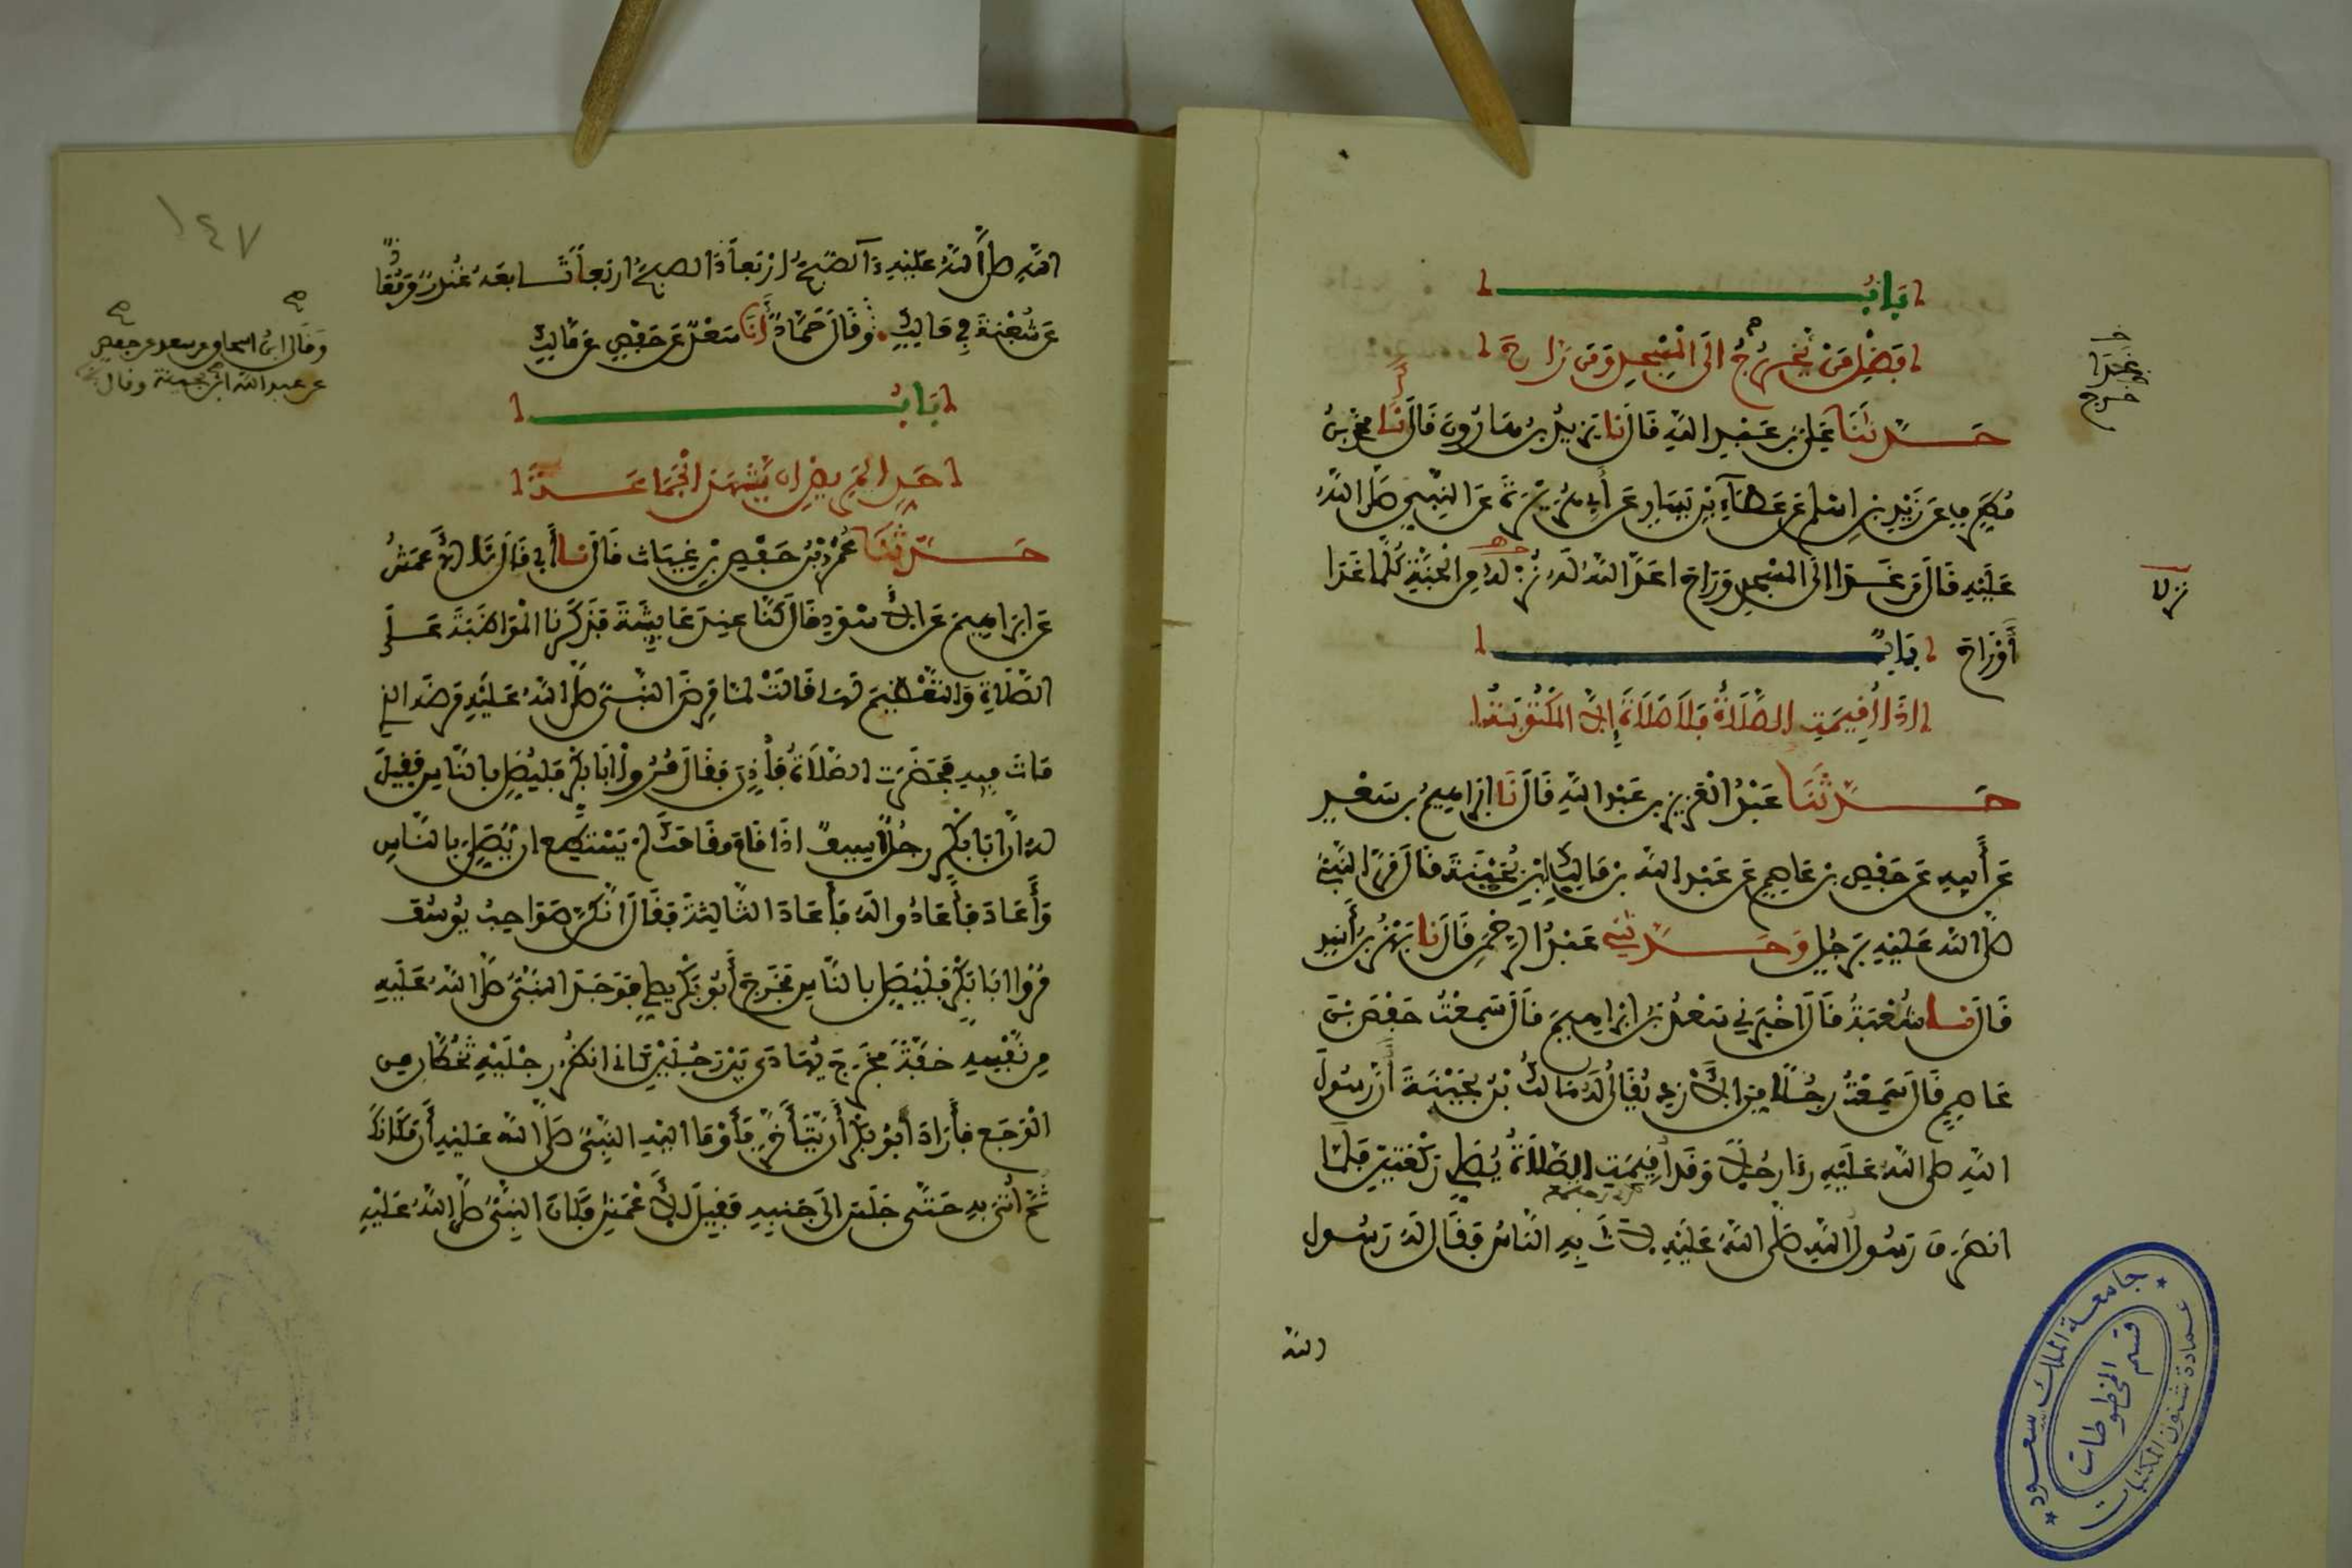 بَابُ
فَضْلِ مَنْ يَخْرُجُ إِلَى الْمَسْجِدِ وَمَنْ رَاحَ
حَدَّثَنَا عَلِيُّ بْنُ عَبْدِ اللَّهِ قَالَ نَا يَزِيدُ بْنُ هَارُونَ قَالَ نَا مُحَمَّدُ بْنُ
مُطَرِّفٍ عَنْ زَيْدِ بْنِ اسْلَمَ عَنْ عَطَاءِ بْنِ يَسَارٍ عَنْ أَبِي هُرَيْرَةَ عَنِ النَّبِيِّ صَلَّى اللَّهُ
عَلَيْهِ قَالَ مَنْ غَدَا إِلَى الْمَسْجِدِ وَرَاحَ اعَدَّ اللَّهُ لَهُ نُزُلَهُ مِنَ الْجَنَّةِ كُلَّمَا غَدَا
أَوْ رَاحَ بَابٌ
إِذَا أُقِيمَتِ الصَّلَاةُ فَلَا صَلَاةَ إِلَّا الْمَكْتُوبَةُ
حَدَّثَنَا عَبْدُ الْعَزِيزِ بْنُ عَبْدِ اللَّهِ قَالَ نَا إِبْرَاهِيمُ بْنُ سَعْدٍ
عَنْ أَبِيهِ عَنْ حَفْصِ بْنِ عَاصِمٍ عَنْ عَبْدِ اللَّهِ بْنِ مَالِكٍ ابْنِ بُحَيْنَةَ قَالَ مَرَّ النَّبِيُّ
صَلَّى اللَّهُ عَلَيْهِ بِرَجُلٍ وَحَدَّثَنِي عَبْدُ الرَّحْمَنِ قَالَ نَا بَهْزُ بْنُ أَسَدٍ
قَالَ نَا شُعْبَةُ قَالَ أَخْبَرَنِي سَعْدُ بْنُ إِبْرَاهِيمَ قَالَ سَمِعْتُ حَفْصَ بْنَ
عَاصِمٍ قَالَ سَمِعْتُ رَجُلًا مِنَ الْأَزْدِ يُقَالُ لَهُ مَالِكُ بْنُ بُحَيْنَةَ أَنَّ رَسُولَ
اللَّهِ صَلَّى اللَّهُ عَلَيْهِ رَءَا رَجُلًا وَقَدْ أُقِيمَتِ الصَّلَاةُ يُصَلِّي رَكْعَتَيْنِ فَلَمَّا
انْصَرَفَ رَسُولُ اللَّهِ صَلَّى اللَّهُ عَلَيْهِ لَاثَ بِهِ النَّاسُ فَقَالَ لَهُ رَسُولُ
الله
غدا
خرج
نزلا
جامعة الملك سعود
قسم المخطوطات
عمادة شئون المكتبات
١٤٧
اللَّهِ صَلَّى اللَّهُ عَلَيْهِ ءَآلصُّبْحُ أَرْبَعًا ءَآلصُّبْحُ أَرْبَعًا تَابَعَهُ غُنْدَرٌ وَمُعَاذٌ
عَنْ شُعْبَةَ فِي مَالِكٍ وَقَالَ حَمَّادٌ أَنَا سَعْدٌ عَنْ حَفْصٍ عَنْ مَالِكٍ
وقال ابن اسحاق عن سعد عن حفص
عن عبد الله ابن بحينة وقال
بَابُ
حَدِّ الْمَرِيضِ ان يَشْهَدَ الْجَمَاعَةَ
حَدَّثَنَا عُمَرُ بْنُ حَفْصِ بْنِ غِيَاثٍ قَالَ نَا أَبِي قَالَ نَا الْأَعْمَشُ
عَنْ إِبْرَاهِيمَ عَنِ الْأَسْوَدِ قَالَ كُنَّا عِنْدَ عَائِشَةَ فَذَكَرْنَا الْمُوَاظَبَةَ عَلَى
الصَّلَاةِ وَالتَّعْظِيمَ لَهَا قَالَتْ لَمَّا مَرِضَ النَّبِيُّ صَلَّى اللَّهُ عَلَيْهِ مَرَضَهُ الذِي
مَاتَ فِيهِ فَحَضَرَتِ الصَّلَاةُ فَأُذِّنَ فَقَالَ مُرُوا أَبَا بَكْرٍ فَلْيُصَلِّ بِالنَّاسِ فَقِيلَ
لَهُ إِنَّ أَبَا بَكْرٍ رَجُلٌ أَسِيفٌ إِذَا قَامَ مَقَامَكَ لَمْ يَسْتَطِعْ أَنْ يُصَلِّيَ بِالنَّاسِ
وَأَعَادَ فَأَعَادُوا لَهُ فَأَعَادَ الثَّالِثَةَ فَقَالَ إِنَّكُنَّ صَوَاحِبُ يُوسُفَ
مُرُوا أَبَا بَكْرٍ فَلْيُصَلِّ بِالنَّاسِ فَخَرَجَ أَبُو بَكْرٍ يُصَلِّي فَوَجَدَ النَّبِيُّ صَلَّى اللَّهُ عَلَيْهِ
مِنْ نَفْسِهِ خِفَّةً فَخَرَجَ يُهَادَى بَيْنَ رَجُلَيْنِ كَأَنِّي أَنْظُرُ رِجْلَيْهِ تَخُطَّانِ مِنَ
الْوَجَعِ فَأَرَادَ أَبُو بَكْرٍ أَنْ يَتَأَخَّرَ فَأَوْمَأَ إِلَيْهِ النَّبِيُّ صَلَّى اللَّهُ عَلَيْهِ أَنْ مَكَانَكَ
ثُمَّ أُتِيَ بِهِ حَتَّى جَلَسَ إِلَى جَنْبِهِ فَقِيلَ لِلْأَعْمَشِ فَكَانَ النَّبِيُّ صَلَّى اللَّهُ عَلَيْهِ